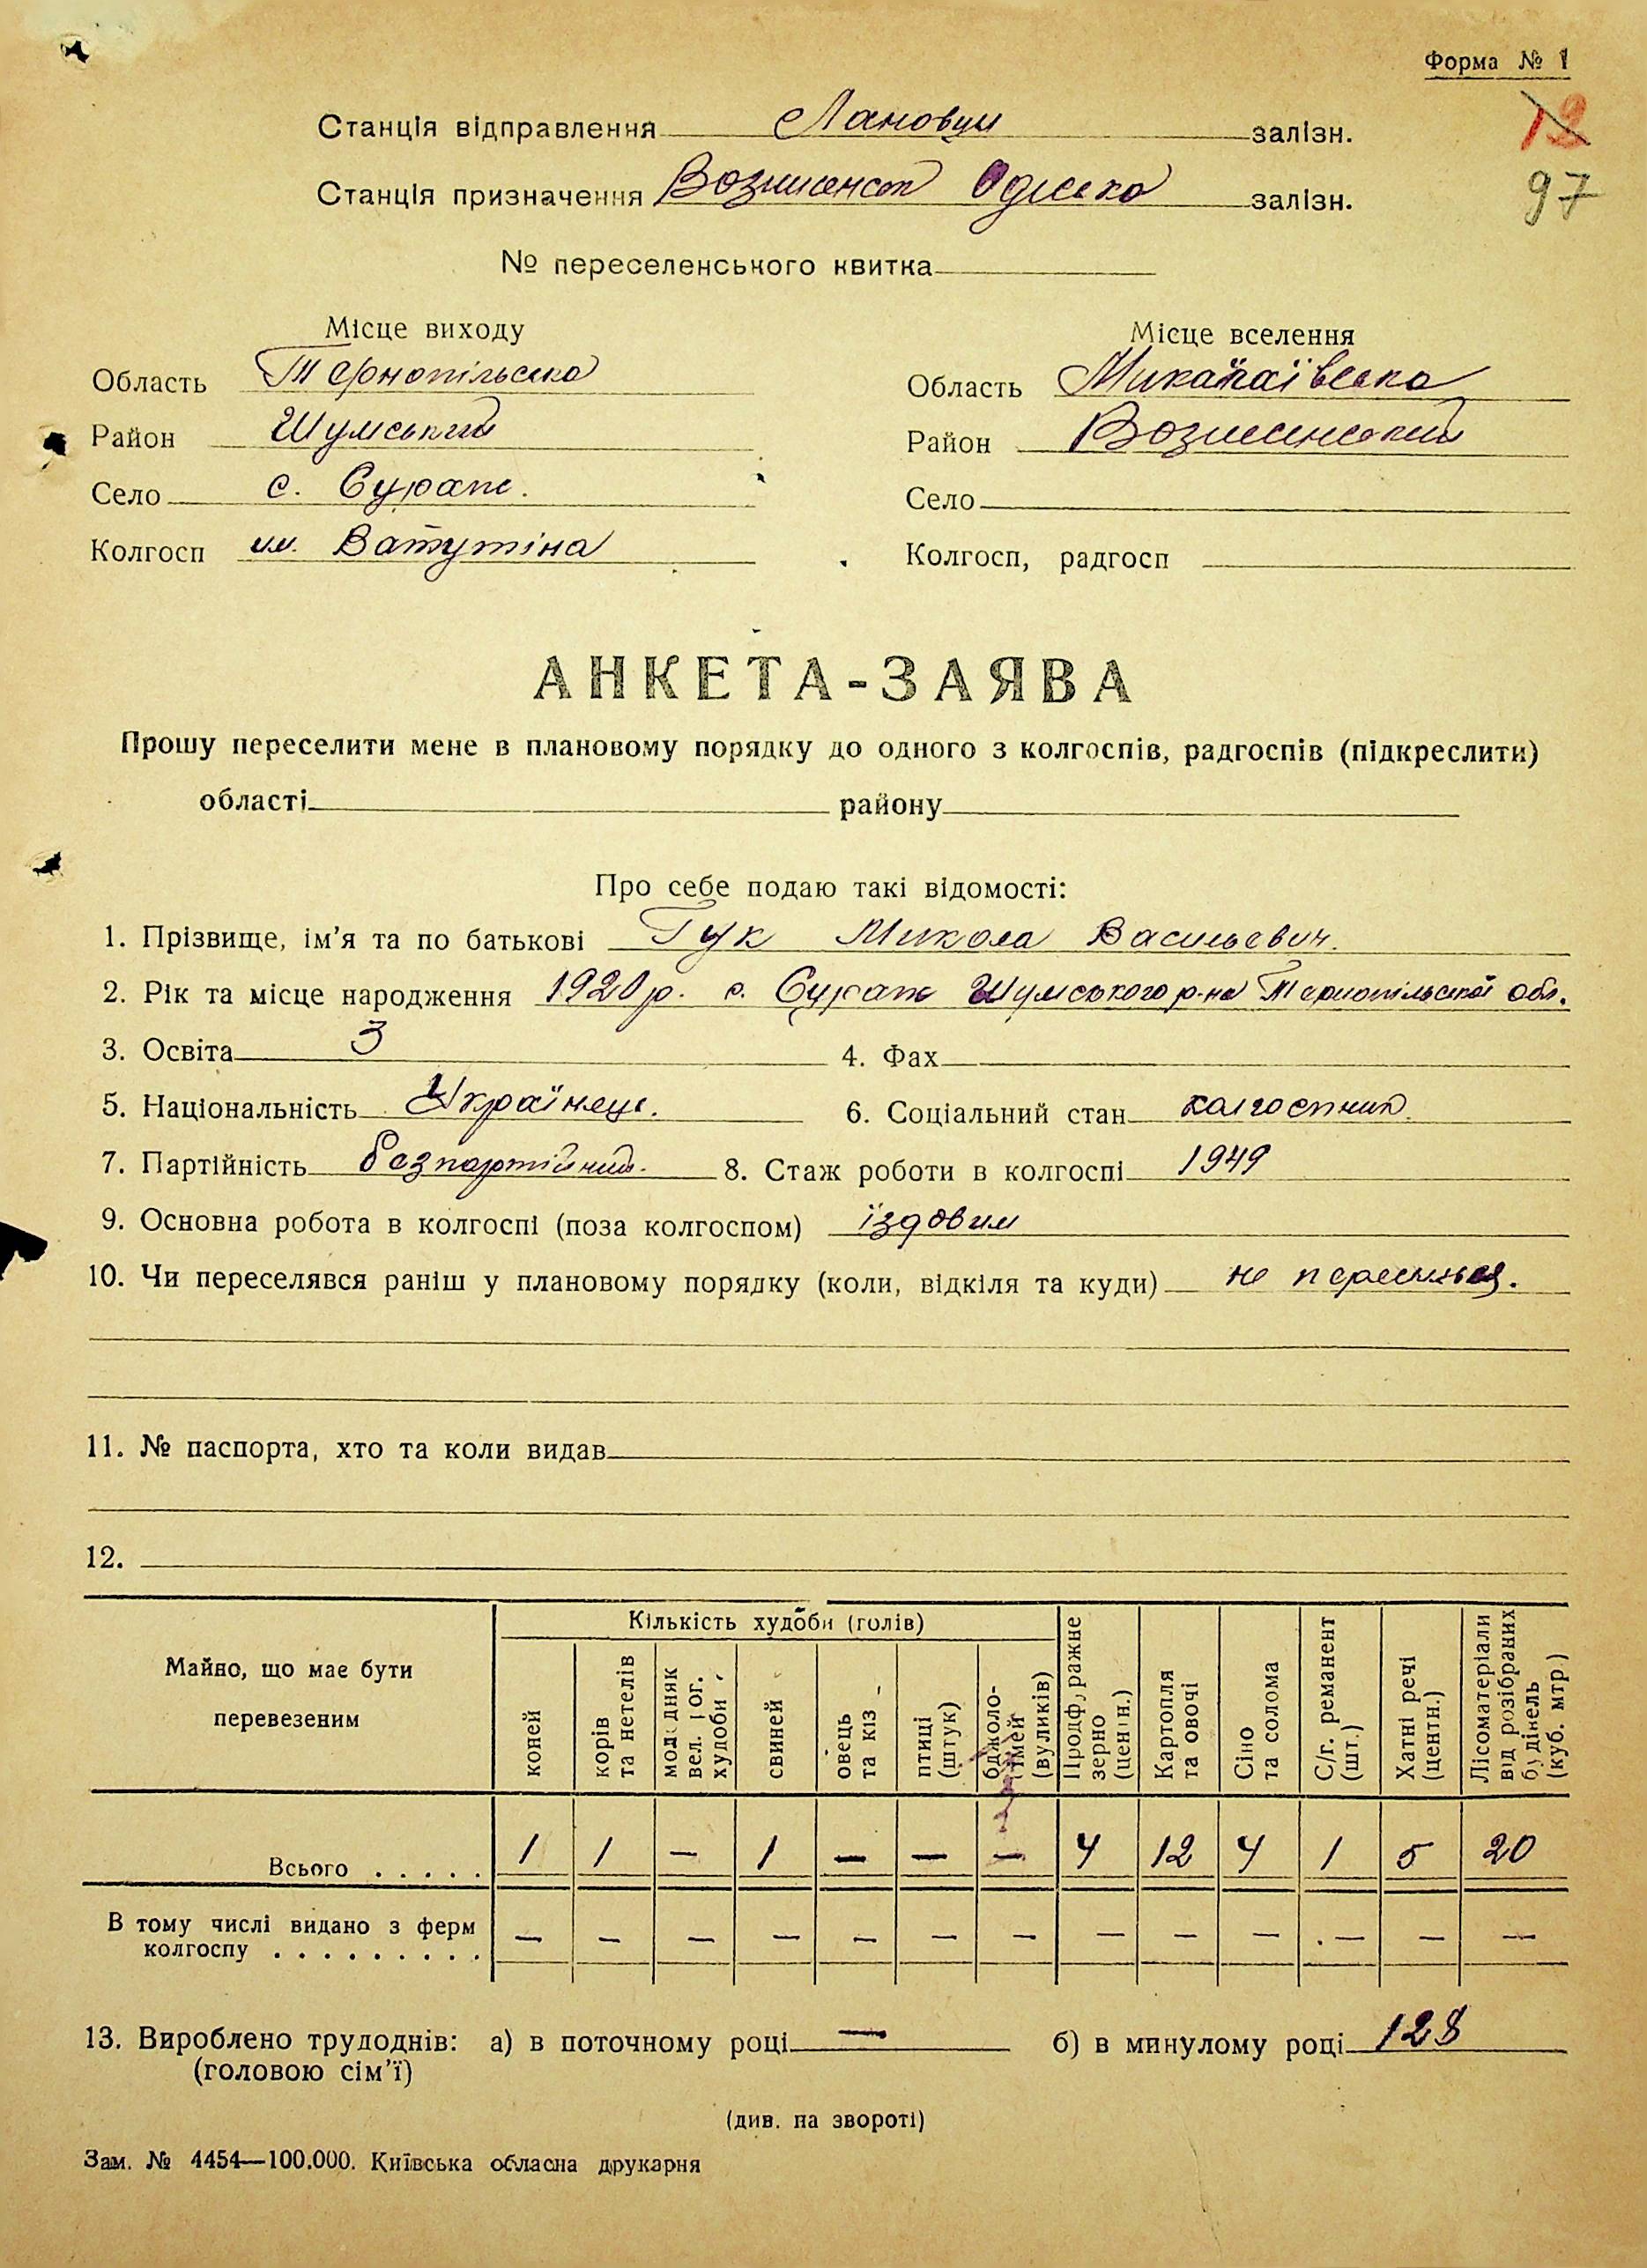 Форма № 1
Станція відправлення Лановци залізн.
12
Станція призначення Вознисенст Одеська залізн.
97
№ переселенського квитка
Місце виходу Місце вселення
Область Тернопільська Область Миколаївська
Район Шумський Район Вознисенський
Село с. Сураж. Село
Колгосп им. Ватутіна Колгосп, радгосп
АНКЕТА-ЗАЯВА
Прошу переселити мене в плановому порядку до одного з колгоспів, радгоспів (підкреслити)
області району
Про себе подаю такі відомості:
1. Прізвище, ім'я та по батькові Гук Микола Васильевич.
2. Рік та місце народження 1920 р. с. Сураж Шумського р-на Тернопільської обл.
3. Освіта 3 4. Фах
5. Національність Українець. 6. Соціальний стан колгоспник.
7. Партійність безпартійний. 8. Стаж роботи в колгоспі 1949
9. Основна робота в колгоспі (поза колгоспом) їздовим
10. Чи переселявся раніш у плановому порядку (коли, відкіля та куди) не
11. № паспорта, хто та коли видав
12.
Майно, що має бути перевезеним
Кількість худоби (голів)
коней
корів та нетелів
молодняк вел. рог. худоби
свиней
овець та кіз
птиці (штук)
бджоло-сімей (вуликів)
Продф,ражне зерно (центн.)
Картопля та овочі
Сіно та солома
С/г. реманент (шт.)
Хатні речі (центн.)
Лісоматеріали від розібраних будінель (куб. мтр.)
Всього . . . . . 1 1 — 1 — — — 4 12 4 1 5 20
В тому числі видано з ферм
колгоспу . . . . . . . . . — — — — — — — — — — — — —
13. Вироблено трудоднів: а) в поточному році — б) в минулому році 128
(головою сім'ї)
(див. на звороті)
Зам. № 4454—100.000. Київська обласна друкарня